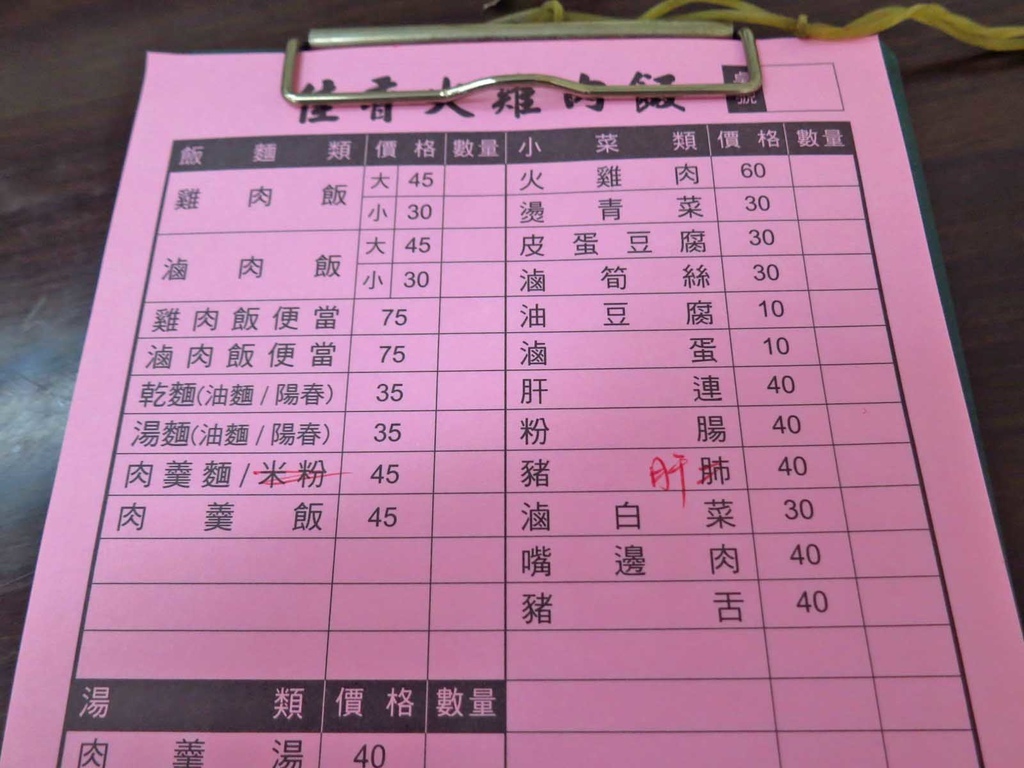 佳香火雞肉飯 桌號
飯麵類 價格 數量
雞肉飯 大 45
小 30
滷肉飯 大 45
小 30
雞肉飯便當 75
滷肉飯便當 75
乾麵(油麵/陽春) 35
湯麵(油麵/陽春) 35
肉羹麵/米粉 45
肉羹飯 45
湯類 價格 數量
肉羹湯 40
小菜類 價格 數量
火雞肉 60
燙青菜 30
皮蛋豆腐 30
滷筍絲 30
油豆腐 10
滷蛋 10
肝連 40
粉腸 40
豬肺 肝 40
滷白菜 30
嘴邊肉 40
豬舌 40